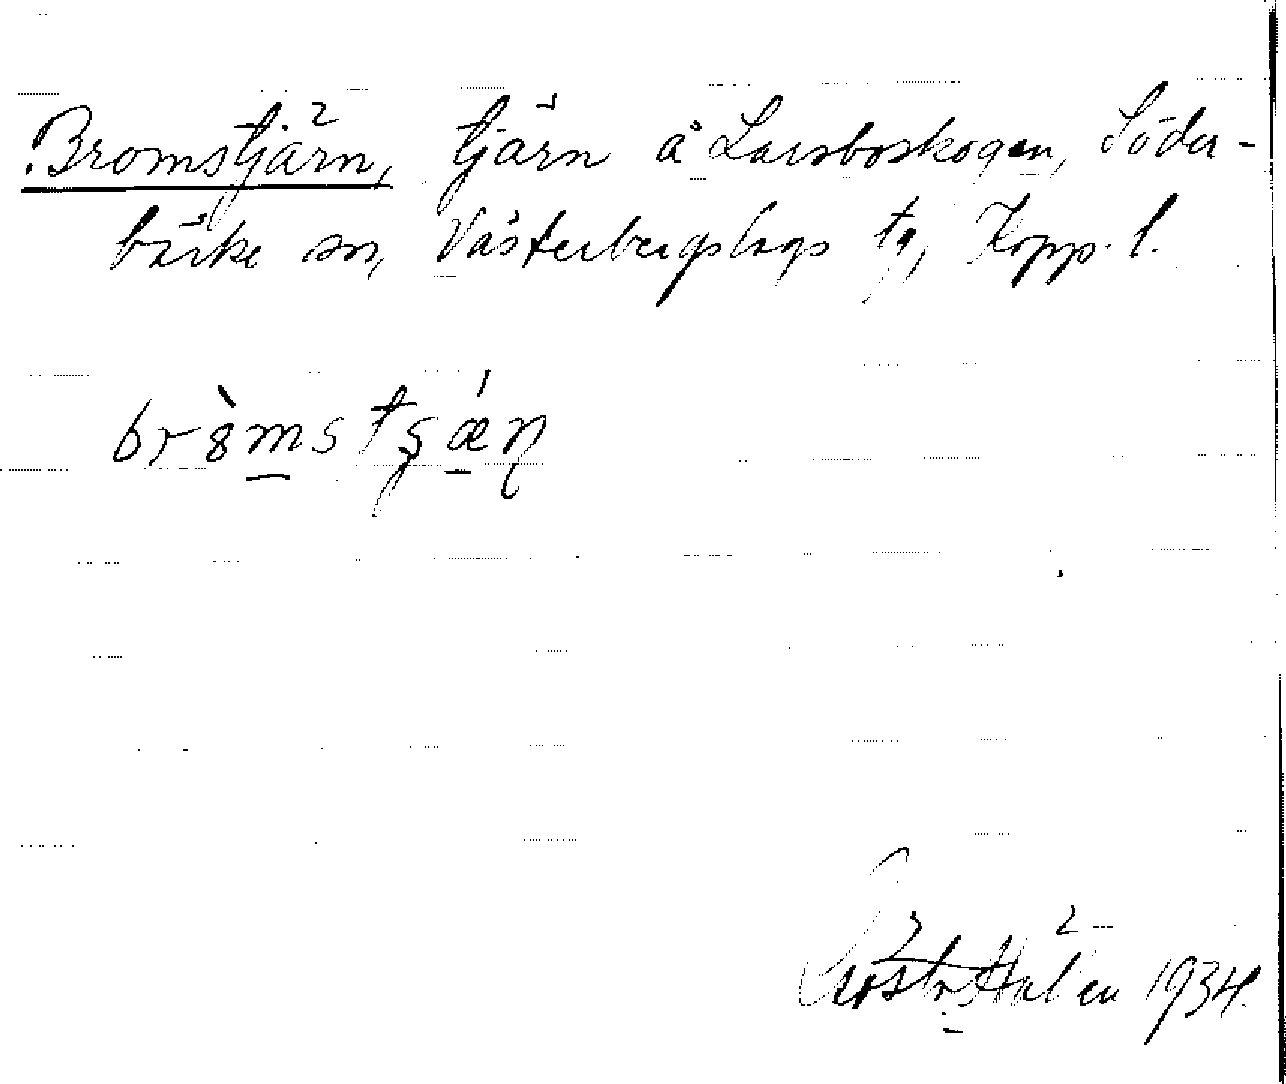 Bromstjärn, tjärn å Larsboskogen, Söder-
bärke sn, Västerbergslags tg, Kopp. l.
bròmstʂǽɳ
1934.